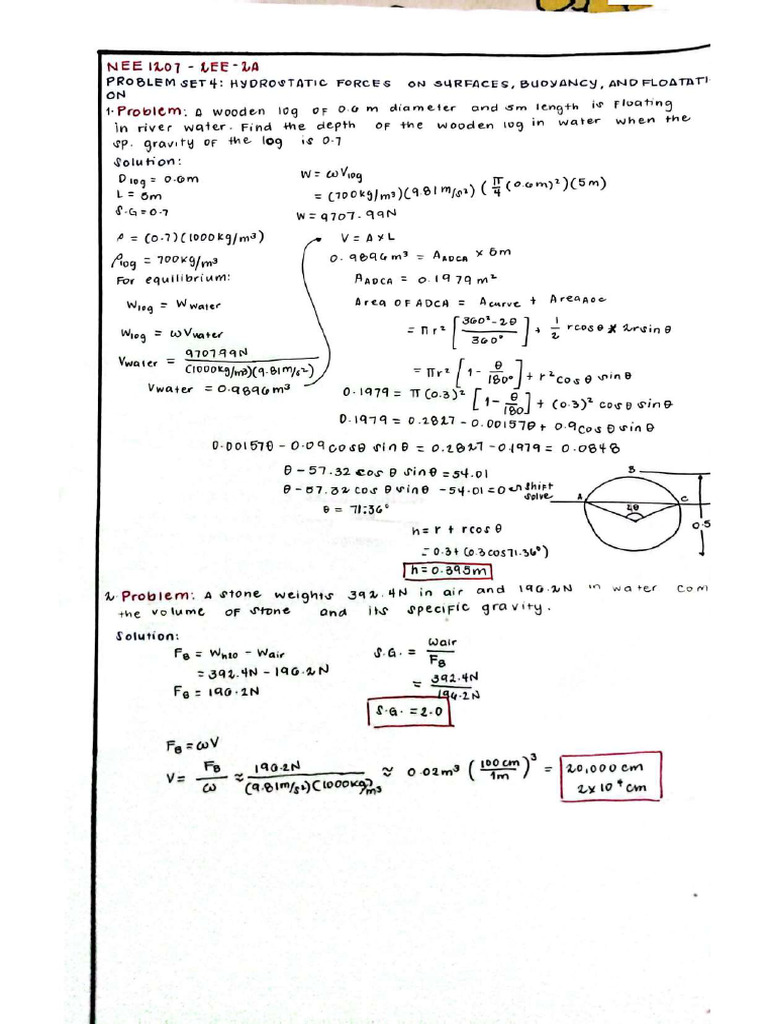 NEE 1207 - 2EE-2A
PROBLEM SET 4: HYDROSTATIC FORCES ON SURFACES, BUOYANCY, AND FLOATATI
ON
1. Problem: A wooden log of 0.6 m diameter and 5m length is floating
in river water. Find the depth of the wooden log in water when the
sp. gravity of the log is 0.7
Solution:
D log = 0.6m
L = 5m
S.G = 0.7
ρ = (0.7)(1000kg/m³)
ρlog = 700kg/m³
For equilibrium:
Wlog = Wwater
Wlog = ωVwater
Vwater = 9707.99N / (1000kg/m³)(9.81m/s²)
Vwater = 0.9896m³
W = ωVlog
= (700kg/m³)(9.81m/s²)(π/4 (0.6m)²)(5m)
W = 9707.99N
V = A × L
0.9896m³ = AADCA × 5m
AADCA = 0.1979m²
Area OF ADCA = Acurve + AreaAOC
= πr² [360°-2θ / 360°] + 1/2 rcosθ × 2rsinθ
= πr² [1 - θ/180°] + r²cosθ sinθ
0.1979 = π(0.3)² [1 - θ/180] + (0.3)² cosθ sinθ
0.1979 = 0.2827 - 0.00157θ + 0.9cosθ sinθ
0.00157θ - 0.09cosθ sinθ = 0.2827 - 0.1979 = 0.0848
θ - 57.32 cos θ sinθ = 54.01
θ - 57.32 cos θ sinθ - 54.01 = 0 → shift
solve
θ = 71.36°
h = r + rcosθ
= 0.3 + (0.3cos71.36°)
h = 0.395m
B
A
C
2θ
0.5
2. Problem: A stone weights 392.4N in air and 196.2N in water com
the volume of stone and its specific gravity.
Solution:
FB = Wh20 - Wair
= 392.4N - 196.2N
FB = 196.2N
S.G. = Wair / FB
= 392.4N / 196.2N
S.G. = 2.0
FB = ωV
V = FB / ω ≈ 196.2N / (9.81m/s²)(1000kg/m³) ≈ 0.02m³ (100cm / 1m)³ = 20,000 cm
2 x 10⁴ cm